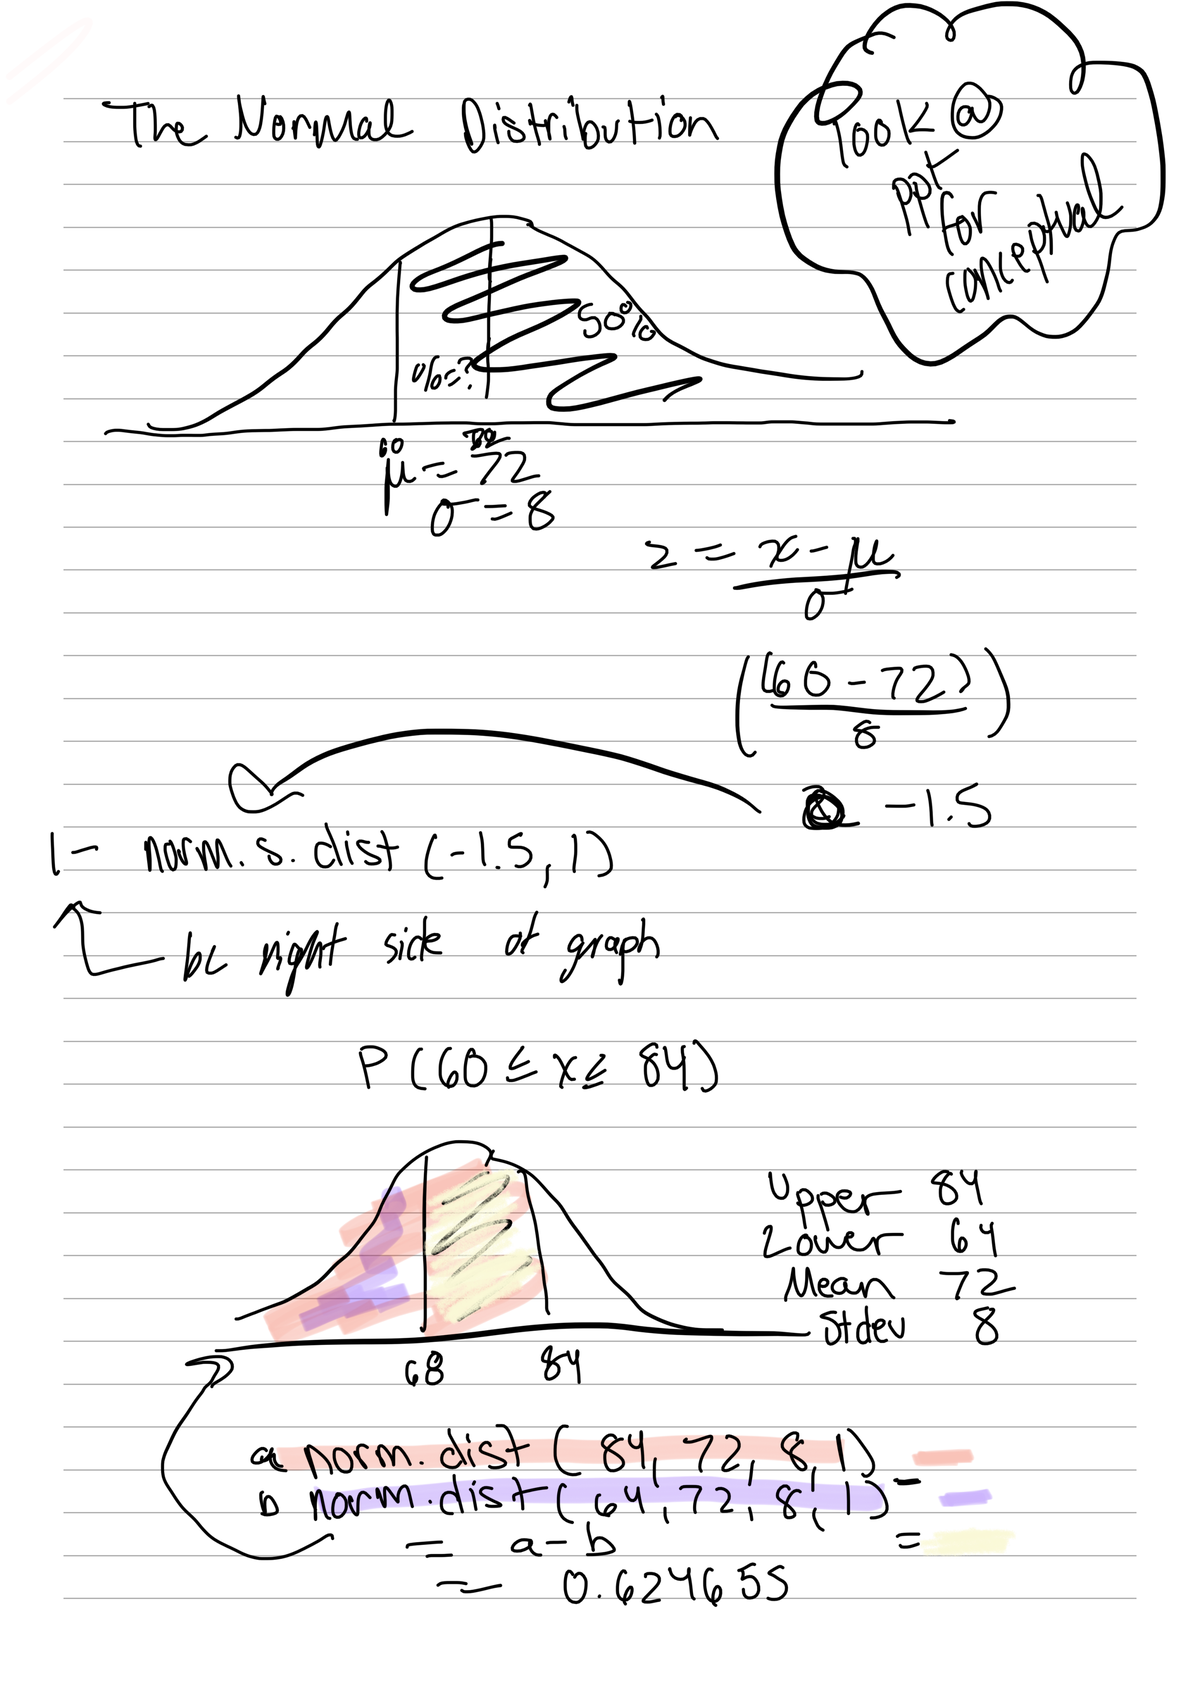 The Normal Distribution
look @
ppt
for
conceptual
50%
%=?
60
μ = 72
σ = 8
z = x - μ
σ
((60 - 72))
8
-1.5
1 - norm.s.dist (-1.5, 1)
bc right side of graph
P (60 ≤ x ≤ 84)
Upper 84
Lower 64
Mean 72
Stdev 8
68 84
a norm.dist (84, 72, 8, 1) -
b norm.dist (64, 72, 8, 1)
= a - b =
= 0.624655